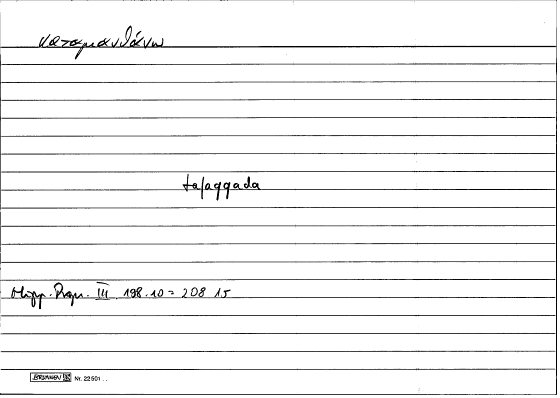 καταμανθάνω
tafaqqada
Hipp. Progn. III 198.10 = 208 15
BRUNNEN Nr. 22 501